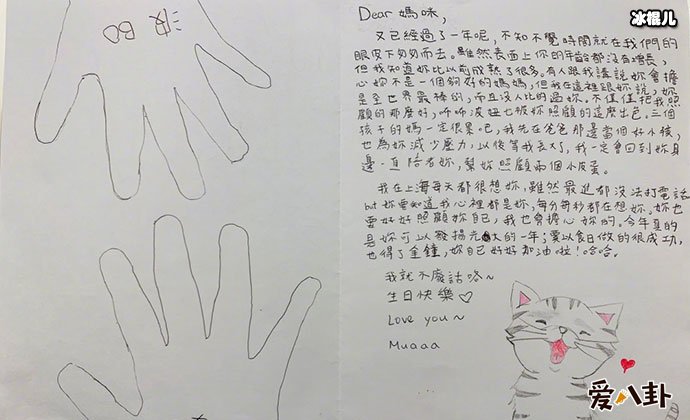 波BO
Dear 媽咪,
又已經過了一年呢，不知不覺時間就在我們的
眼皮下匆匆而去。雖然表面上你的年齡都沒有增長，
但我知道妳比以前成熟了很多。有人跟我講說妳會擔
心妳不是一個夠好的媽媽，但我在這裡跟妳說，妳
是全世界最棒的，而且沒人比的過妳。不僅僅把我照
顧的那麼好，咘咘波妞也被妳照顧的這麼出色，三個
孩子的媽一定很累吧，我先在爸爸那邊當個好小孩，
也為妳減少壓力，以後等我長大了，我一定會回到妳身
邊一直陪著妳，幫妳照顧兩個小皮蛋。
我在上海每天都很想妳，雖然最近都沒法打電話
but妳要知道我心裡都是妳，每分每秒都在想妳。妳也
要好好照顧妳自己，我也會擔心妳的。今年真的
是妳可以發揚光大的一年；愛以食日做的很成功，
也得了金鐘，妳自己好好加油啦！哈哈。
我就不廢話咯~
生日快樂♡
Love you~
Muaaa
冰棍儿
爱八卦